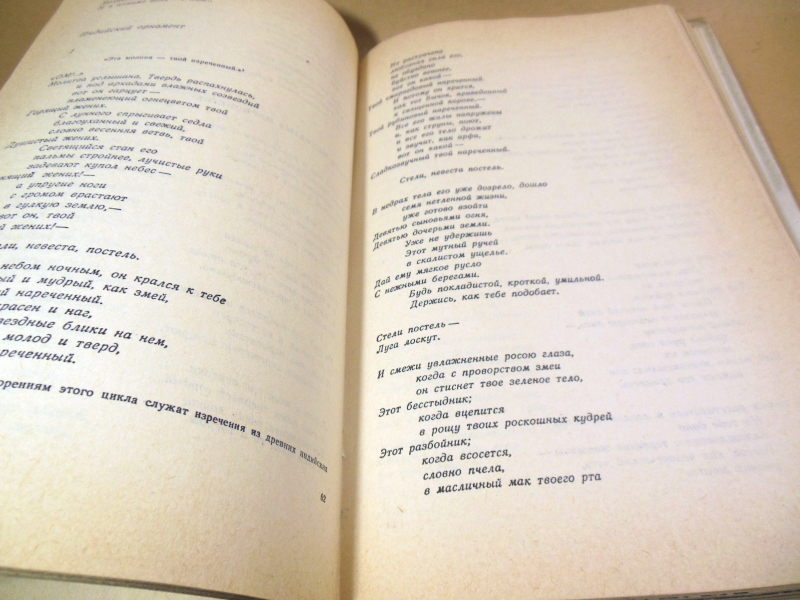 Индийский орнамент
«Эта молния — твой нареченный.»¹
«ОМ!..»
Молитва услышана. Твердь распахнулась,
и под аркадами влажных созвездий
вот он гарцует —
пламенеющий огнецветом твой
Горящий жених.
С лунного спрыгивает седла
благоуханный и свежий,
словно весенняя ветвь, твой
Душистый жених.
Светящийся стан его
пальмы стройнее, лучистые руки
задевают купол небес —
жених! —
а упругие ноги
с громом врастают
в гулкую землю, —
вот он, твой
жених! —
невеста, постель.
небом ночным, он крался к тебе
и мудрый, как змей,
нареченный.
и наг,
блики на нем,
молод и тверд,
этого цикла служат изречения из древних индийских
62
вот он какой —
Твой нареченный.
И потому он ярится,
как тот бычок, приведенной
к священной корове, —
Твой рубиновый нареченный.
Все его жилы напряжены
и, как струны, поют,
и все его тело дрожит
и звучит, как арфа,
вот он какой —
Сладкозвучный твой нареченный.
Стели, невеста постель.
В недрах тела его уже дозрело, дошло
семя нетленной жизни,
уже готово взойти
Девятью сыновьями огня,
Девятью дочерьми земли.
Уже не удержишь
Этот мутный ручей
в скалистом ущелье.
Дай ему мягкое русло
С нежными берегами.
Будь покладистой, кроткой, умильной.
Держись, как тебе подобает.
Стели постель —
Луга лоскут.
И смежи увлажненные росою глаза,
когда с проворством змеи
он стиснет твое зеленое тело,
Этот бесстыдник;
когда вцепится
в рощу твоих роскошных кудрей
Этот разбойник;
когда всосется,
словно пчела,
в масличный мак твоего рта